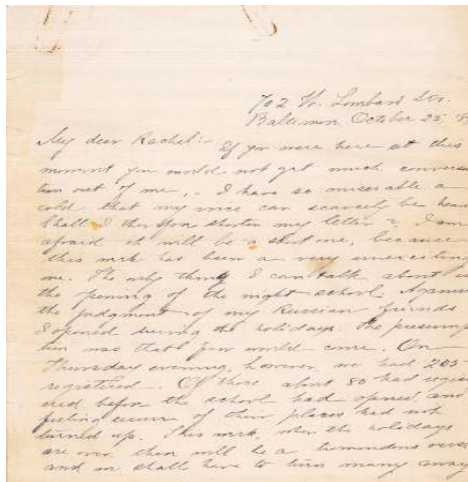 702 W. Lombard Str.
Baltimore October 25' 8
My dear Rachel:- If you were here at this
moment you would not get much conversa
tion out of me, - I have so miserable a
cold that my voice can scarcely be hear
Shall I therefore shorten my letter? I am
afraid it will be a short one, because
this week has been a very uninteresting
one. The only thing I can talk about is
the opening of the night school. Against
the judgment of my Russian friends
I opened during the holidays. The presump
tion was that few would come. On
Thursday evening, however we had 205
registered. Of these about 80 had regis
ered before the school had opened, and
feeling secure of their places had not
turned up. This week, when the holidays
are over there will be a tremendous
and we shall have to turn many away